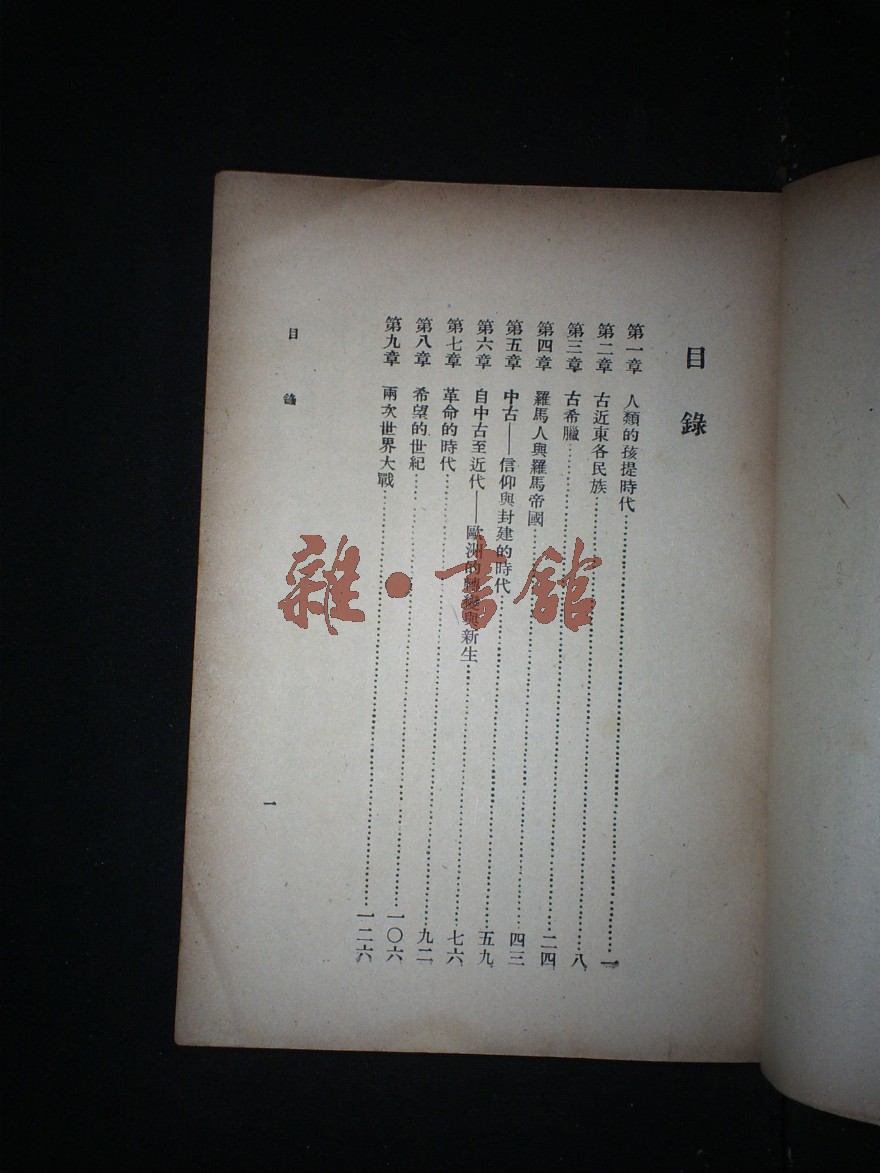 目錄
第一章 人類的孩提時代……一
第二章 古近東各民族……八
第三章 古希臘……二四
第四章 羅馬人與羅馬帝國……四三
第五章 中古——信仰與封建的時代……五九
第六章 自中古至近代——歐洲的轉變與新生……七六
第七章 革命的時代……九二
第八章 希望的世紀……一〇六
第九章 兩次世界大戰……一二六
目錄
一
雜·書館